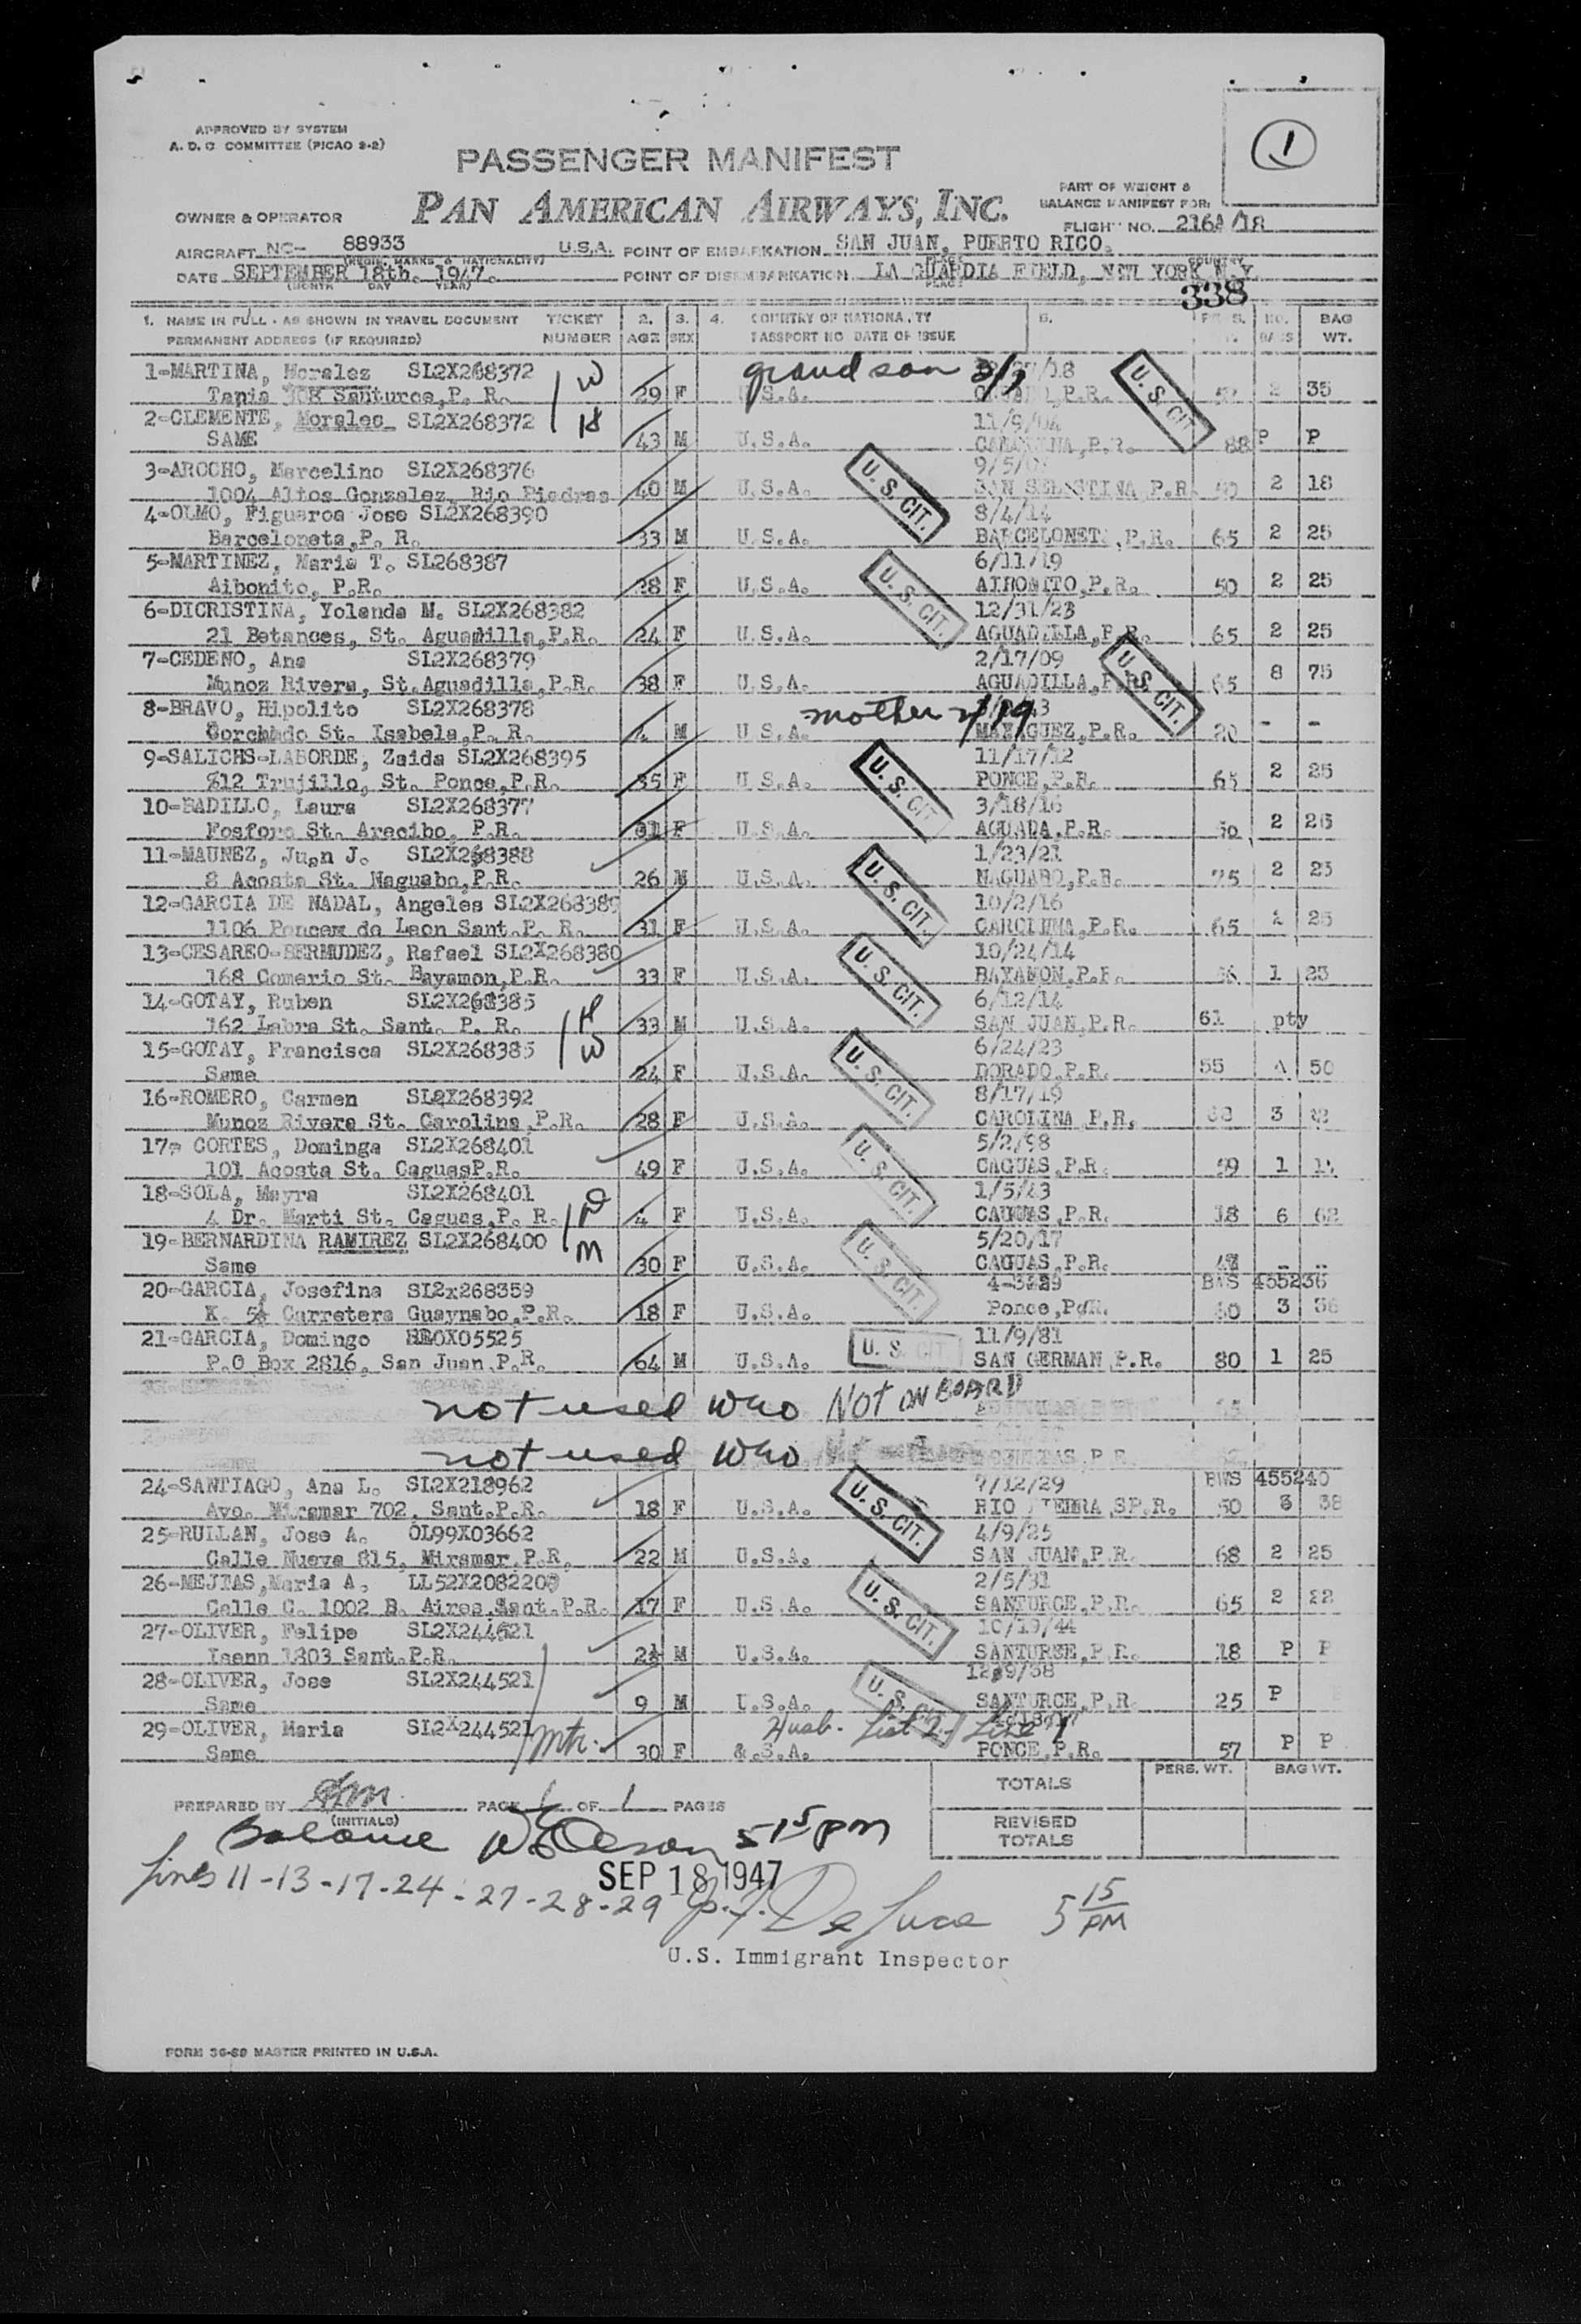 APPROVED BY SYSTEM
A. D. C. COMMITTEE (PICAO 2-2)
1
PASSENGER MANIFEST
PAN AMERICAN AIRWAYS, INC.
PART OF WEIGHT &
BALANCE MANIFEST FOR:
OWNER & OPERATOR
FLIGHT NO. 216A/18
AIRCRAFT NC- 88933 U.S.A. POINT OF EMBARKATION SAN JUAN, PUERTO RICO.
(REGIS. MARKS & NATIONALITY) PLACE COUNTRY
DATE SEPTEMBER 18th. 1947. POINT OF DISEMBARKATION LA GUARDIA FIELD, NEW YORK N.Y.
(MONTH DAY YEAR) PLACE
338
1. NAME IN FULL - AS SHOWN IN TRAVEL DOCUMENT TICKET 2. 3. 4. COUNTRY OF NATIONALITY BAG
PERMANENT ADDRESS (IF REQUIRED) NUMBER AGE SEX PASSPORT NO DATE OF ISSUE BAGS WT.
1-MARTINA, Morales SL2X268372 W grandson 8/7
Tapia Santurce, P. R. 29 F U.S.A. P.R. U.S. CIT. 2 35
2-CLEMENTE, Morales SL2X268372 H 11/9/04
SAME 43 M U.S.A. CAROLINA, P.R. 88 P P
3-AROCHO, Marcelino SL2X268376
1004 Altos Gonzalez, Rio Piedras 40 M U.S.A. U.S. CIT. SAN SEBASTINA P.R. 2 18
4-OLMO, Figueroa Jose SL2X268390 8/4/14
Barceloneta, P. R. 33 M U.S.A. BARCELONETA, P.R. 65 2 25
5-MARTINEZ, Maria T. SL268387 6/11/19
Aibonito, P.R. 28 F U.S.A. U.S. CIT. AIBONITO, P.R. 50 2 25
6-DICRISTINA, Yolanda M. SL2X268382 12/31/23
21 Betances, St. Aguadilla, P.R. 24 F U.S.A. AGUADILLA, P.R. 65 2 25
7-CEDENO, Ana SL2X268379 2/17/09
Munoz Rivera, St. Aguadilla, P.R. 38 F U.S.A. AGUADILLA, P.R. U.S. CIT. 65 8 75
8-BRAVO, Hipolito SL2X268378 mother
Corchado St. Isabela, P. R. 4 M U.S.A. MAYAGUEZ, P.R. 20 - -
9-SALICHS-LABORDE, Zaida SL2X268395 11/17/12
212 Trujillo, St. Ponce, P.R. 35 F U.S.A. U.S. CIT PONCE, P.R. 65 2 25
10-BADILLO, Laura SL2X268377 3/18/16
Fosforo St. Arecibo, P.R. 31 F U.S.A. AGUADA, P.R. 50 2 26
11-MAUNEZ, Juan J. SL2X268388 1/23/21
8 Acosta St. Naguabo, P.R. 26 M U.S.A. U.S. CIT. NAGUABO, P.R. 75 2 25
12-GARCIA DE NADAL, Angeles SL2X268389 10/2/16
1106 Poncem de Leon Sant. P. R. 31 F U.S.A. CAROLINA, P.R. 65 25
13-CESAREO-BERMUDEZ, Rafael SL2X268380 10/24/14
168 Comerio St. Bayamon, P.R. 33 F U.S.A. U.S. CIT. BAYAMON, P.R. 1 23
14-GOTAY, Ruben SL2X268385 H 6/12/14
162 Labra St. Sant. P. R. 33 M U.S.A. SAN JUAN, P.R. 61 pty
15-GOTAY, Francisca SL2X268385 W 6/24/23
Same 24 F U.S.A. U.S. CIT. DORADO, P.R. 55 50
16-ROMERO, Carmen SL2X268392 8/17/19
Munoz Rivera St. Carolina, P.R. 28 F U.S.A. CAROLINA, P.R. 3
17- CORTES, Dominga SL2X268401 5/2/98
101 Acosta St. CaguasP.R. 49 F U.S.A. U.S. CIT. CAGUAS, P.R. 59 1
18-SOLA, Mayra SL2X268401 D 1/5/43
4 Dr. Marti St. Caguas, P. R. 4 F U.S.A. CAGUAS, P.R. 18 6 62
19-BERNARDINA RAMIREZ SL2X268400 M 5/20/17
Same 30 F U.S.A. U.S. CIT. CAGUAS, P.R.
20-GARCIA, Josefina SL2x268359 BWS 455236
K. 5½ Carretera Guaynabo, P.R. 18 F U.S.A. Ponce, P.R. 3 36
21-GARCIA, Domingo 11/9/81
P.O Box 2816, San Juan, P.R. 64 M U.S.A. U. S. CIT SAN GERMAN P.R. 80 1 25
not used who NOT ON BOARD
not used who
24-SANTIAGO, Ana L. SL2X218962 7/12/29 BWS 455240
Ave. Miramar 702, Sant. P.R. 18 F U.S.A. U.S. CIT. RIO PIEDRA,SP.R. 50 3 38
25-RULLAN, Jose A. OL99X03662 4/9/25
Calle Nueva 815, Miramar, P.R. 22 M U.S.A. SAN JUAN, P.R. 68 2 25
26-MEJIAS, Maria A. LL52X208220 2/5/31
Calle C. 1002 B. Aires, Sant. P.R. 17 F U.S.A. U.S. CIT. SANTURCE, P.R. 65 2 22
27-OLIVER, Felipe SL2X244521 10/19/44
Loann 1803 Sant. P.R. 2½ M U.S.A. SANTURSE, P.R. 18 P P
28-OLIVER, Jose SL2X244521
Same 9 M U.S.A. U.S. CIT. SANTURCE, P.R. 25 P
29-OLIVER, Maria SL2X244521 Mtr. Husb. List 2- Line 1
Same 30 F &.S.A. PONCE, P.R. 57 P P
PERS. WT. BAG WT.
TOTALS
PREPARED BY PAGE 1 OF 1 PAGES
(INITIALS)
REVISED
TOTALS
Balance 5 15 pm
SEP 18 1947
Lines 11-13-17-24-27-28-29 De Luca 5 15 PM
U.S. Immigrant Inspector
FORM 36-69 MASTER PRINTED IN U.S.A.